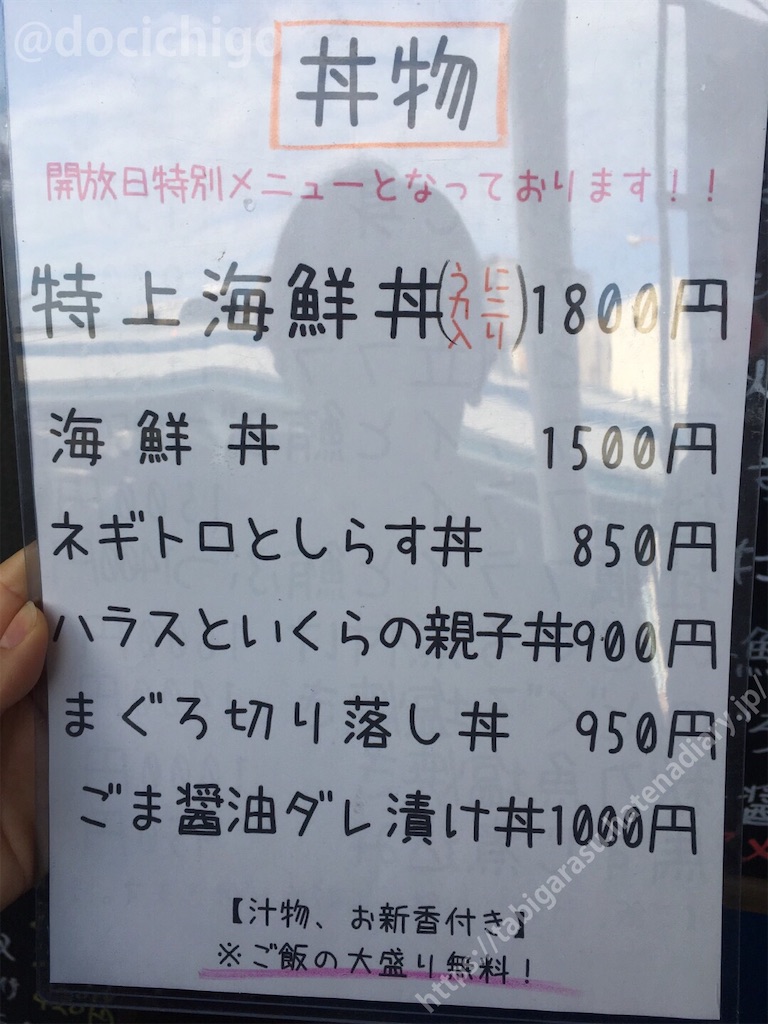 @docichigo
丼物
開放日特別メニューとなっております！！
特上海鮮丼(ウニ カニ 入り)1800円
海鮮丼 1500円
ネギトロとしらす丼 850円
ハラスといくらの親子丼900円
まぐろ切り落し丼 950円
ごま醤油ダレ漬け丼1000円
【汁物、お新香付き】
※ご飯の大盛り無料！
https://tabigarasu.hatenadiary.jp/